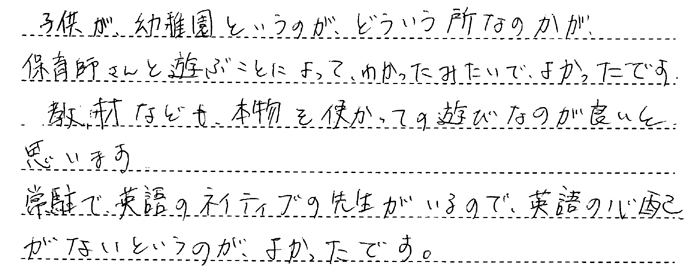 子供が、幼稚園というのが、どういう所なのかが、
保育師さんと遊ぶことによって、わかったみたいで、よかったです。
教材なども、本物を使かっての遊びなのが良いと
思います
常駐で、英語のネイティブの先生がいるので、英語の心配
がないというのが、よかったです。